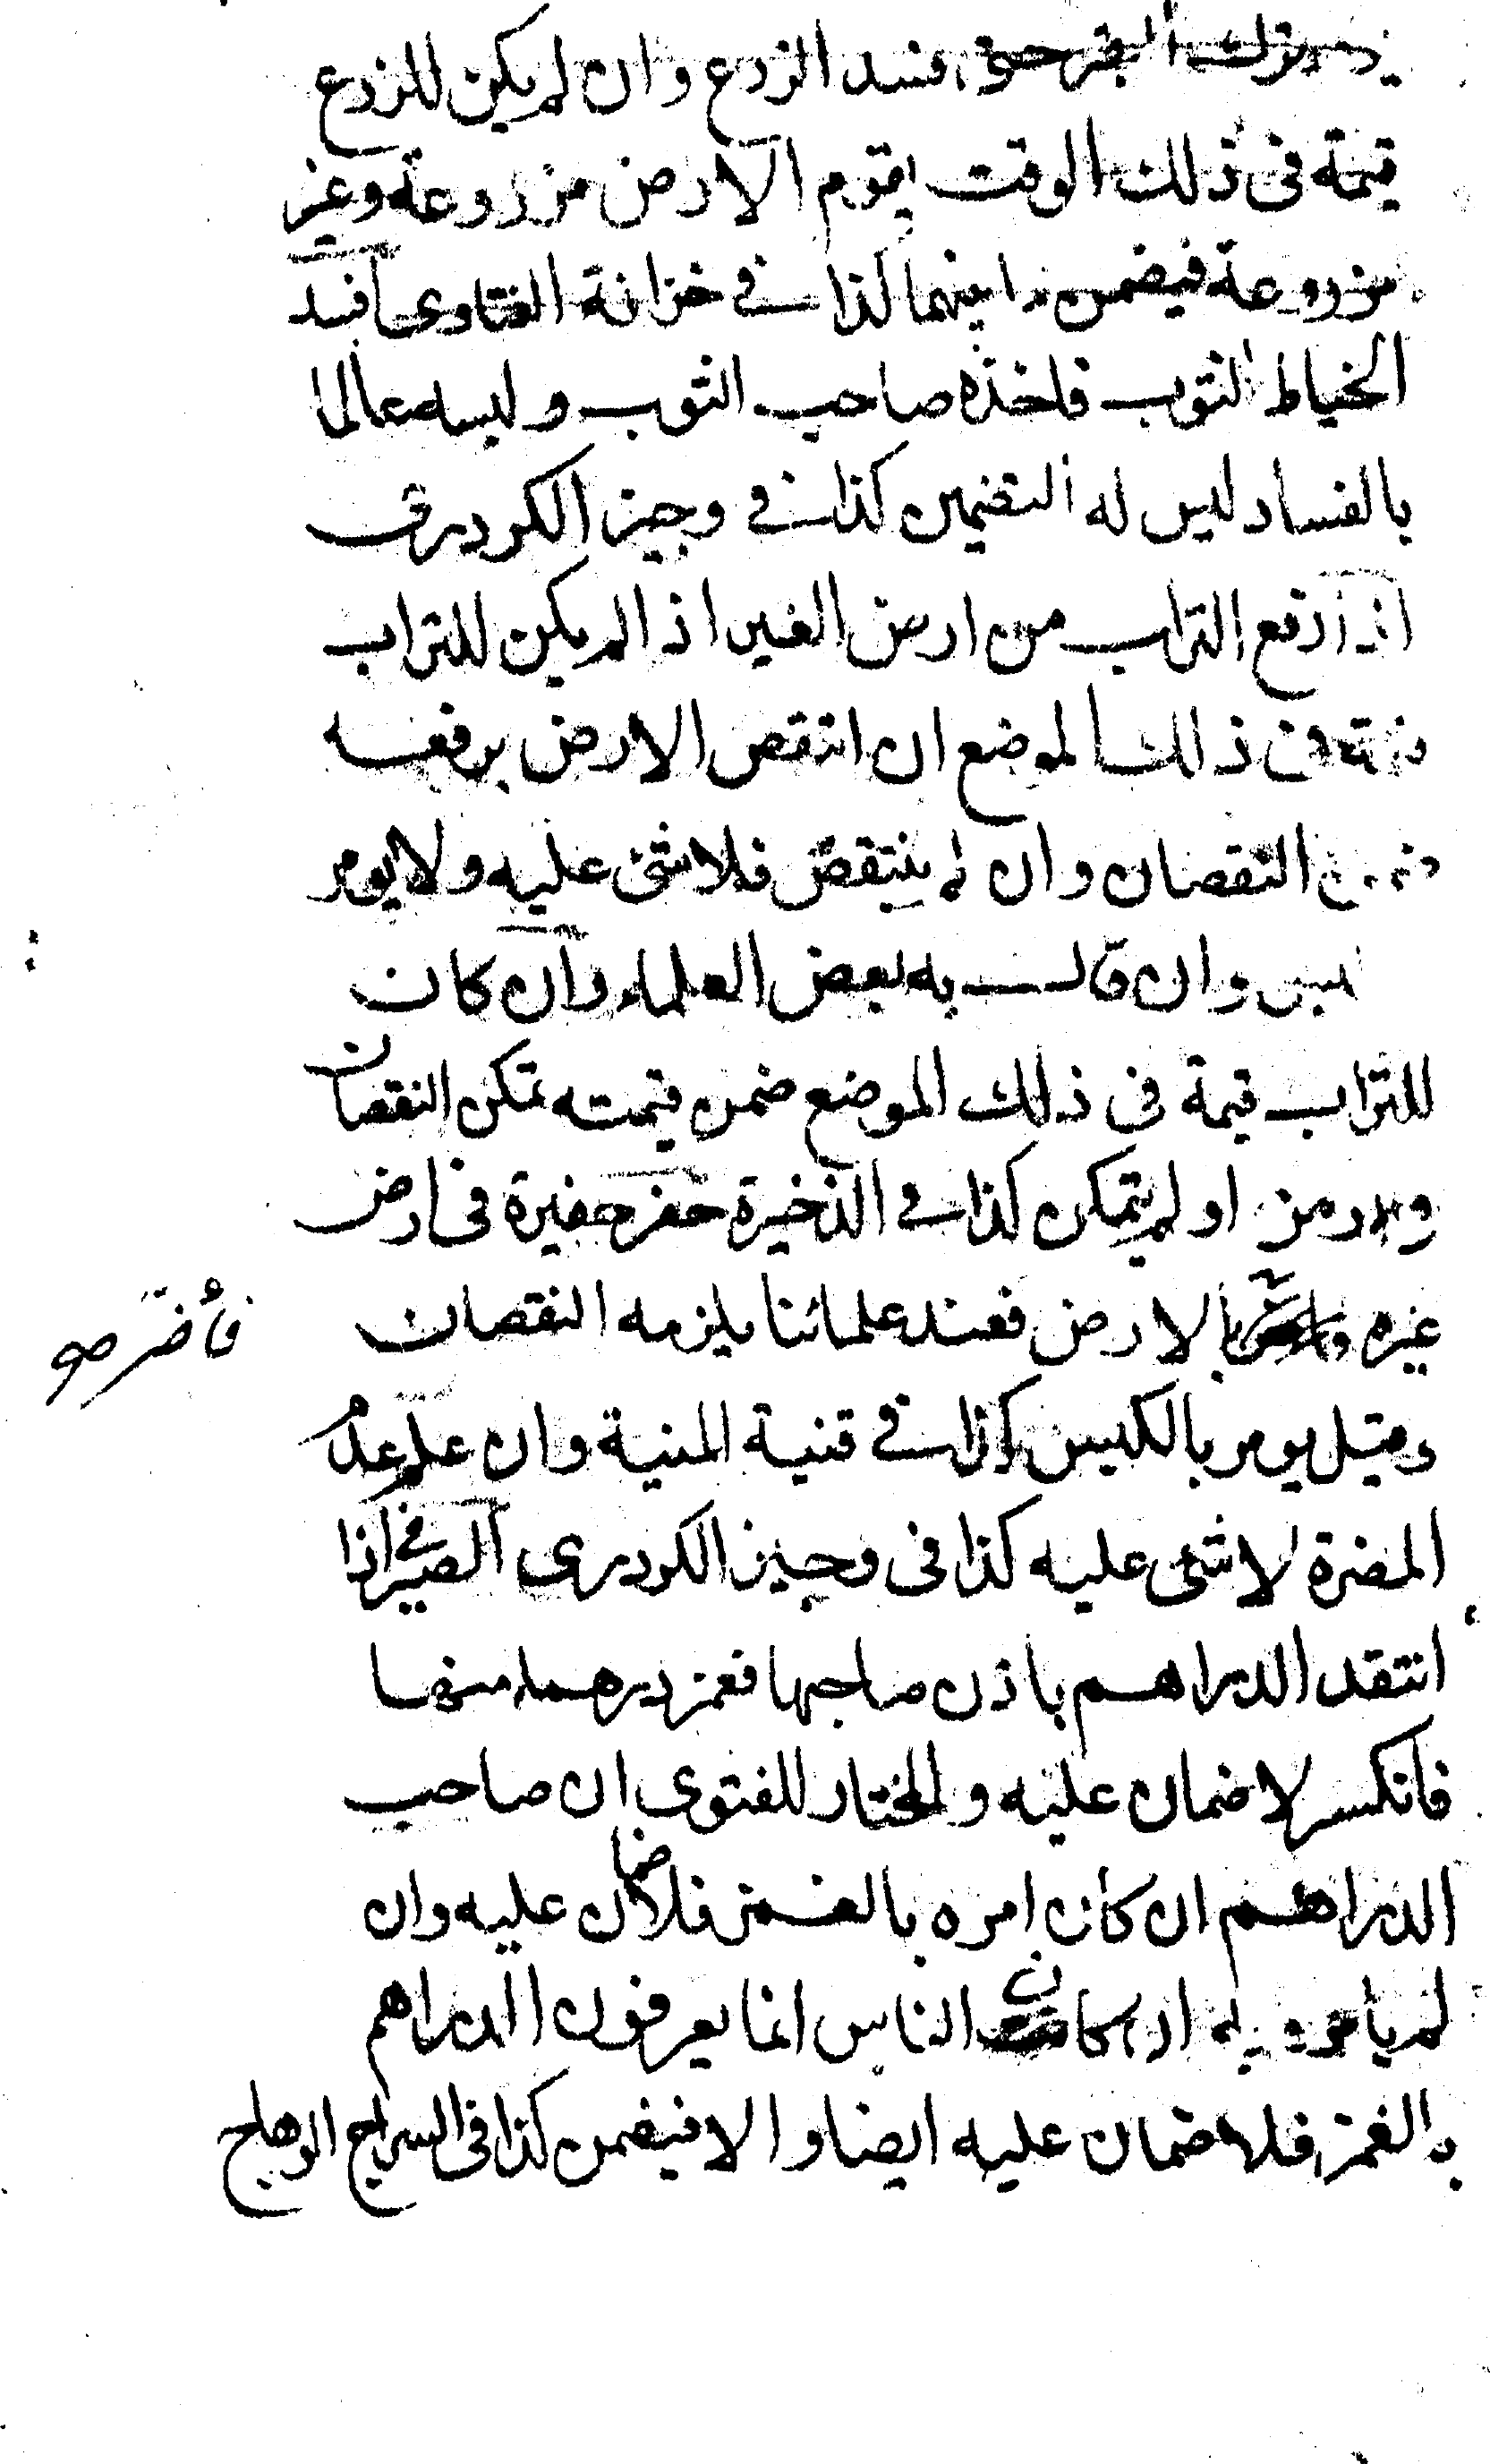 يترك البقر حتى افسد الزرع وان لم يكن للزرع
قيمة فى ذلك الوقت يقوم الارض مزروعة وغير
مزروعة فيضمن ما بينهما كذا في خزانة الفتاوى افسد
الخياط الثوب فاخذه صاحب الثوب ولبسه عالما
بالفساد ليس له التضمين كذا في وجيز الكردرى
اذا رفع التراب من ارض الغير اذا لم يكن للتراب
قيمة فى ذلك الموضع ان انتقص الارض برفعه
ضمن النقصان وان لم ينتقص فلا شئ عليه ولا يومر
وان قال به بعض العلماء وان كان
للتراب قيمة فى ذلك الموضع ضمن قيمته تمكن النقصان
او لم يتمكن كذا في الذخيرة حفر حفيرة فى ارض
غيره بالارض فعند علمائنا يلزمه النقصان
فأضر صح
وقيل يومر بالكبس كذا في قنية المنية وان علم عدم
المضرة لا شئ عليه كذا فى وجيز الكودرى الصيرفي اذا
انتقد الدراهم باذن صاحبها فغمز درهما منها
فانكسر لا ضمان عليه والمختار للفتوى ان صاحب
الدراهم ان كان امره بالغمز فلا ضمان عليه وان
لم يأمره به ان كان الناس انما يعرفون الدراهم
بالغمز فلا ضمان عليه ايضا والا فيضمن كذا فى السراج الوهاج